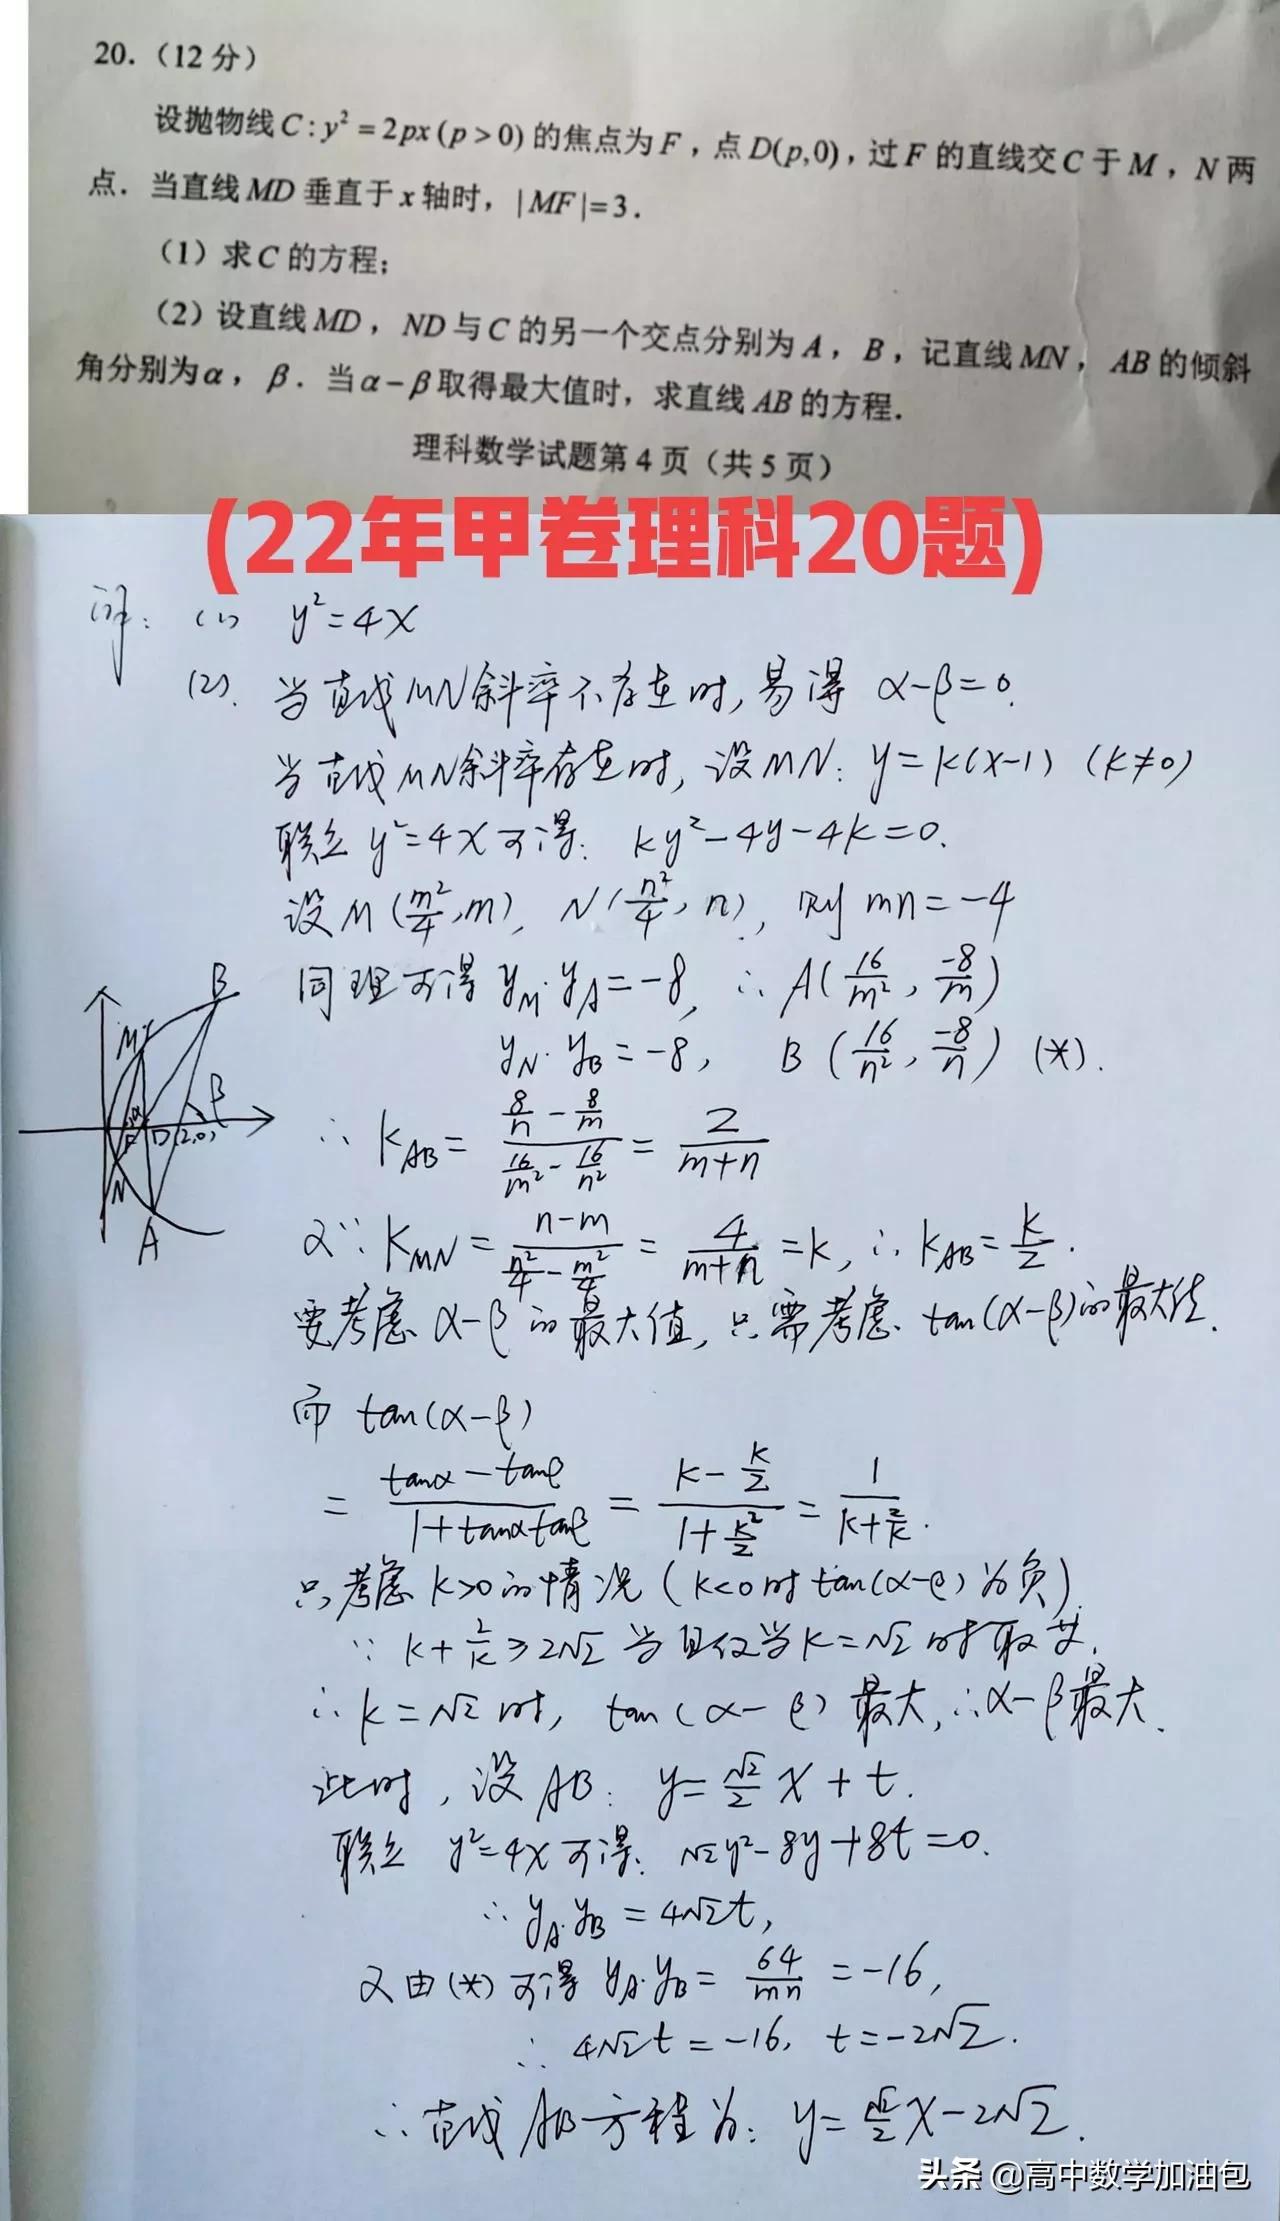 20.（12 分）
设抛物线 C : y² = 2px (p > 0) 的焦点为 F ，点 D(p,0) ，过 F 的直线交 C 于 M ， N 两
点．当直线 MD 垂直于 x 轴时，|MF|=3．
（1）求 C 的方程；
（2）设直线 MD ， ND 与 C 的另一个交点分别为 A ， B ，记直线 MN ， AB 的倾斜
角分别为 α ， β ．当 α − β 取得最大值时，求直线 AB 的方程．
理科数学试题第 4 页（共 5 页）
(22年甲卷理科20题)
解: (1) y²=4x
(2). 当直线MN斜率不存在时, 易得 α-β=0.
当直线MN斜率存在时, 设MN: y=k(x-1) (k≠0)
联立 y²=4x 可得: ky²-4y-4k=0.
设 M(m²/4, m), N(n²/4, n), 则 mn=-4
同理可得 y_M·y_A=-8, ∴ A(16/m², -8/m)
y_N·y_B=-8, B(16/n², -8/n) (*).
∴ k_AB = (8/n - 8/m)/(16/m² - 16/n²) = 2/(m+n)
又∵ k_MN = (n-m)/(n²/4 - m²/4) = 4/(m+n) = k, ∴ k_AB = k/2.
要考虑 α-β 的最大值, 只需考虑 tan(α-β)的最大值.
而 tan(α-β)
= (tanα-tanβ)/(1+tanαtanβ) = (k-k/2)/(1+k²/2) = 1/(k+2/k).
只考虑 k>0 的情况 (k<0时 tan(α-β) 为负).
∵ k+2/k ≥ 2√2 当且仅当 k=√2 时取等.
∴ k=√2 时, tan(α-β) 最大, ∴α-β最大.
此时, 设 AB: y=√2/2 x+t.
联立 y²=4x 可得: √2y²-8y+8t=0.
∴ y_A·y_B=4√2t,
又由(*)可得 y_A·y_B = 64/mn = -16,
∴ 4√2t=-16, t=-2√2.
∴ 直线 AB 方程为: y=√2/2 x-2√2.
B
M
α
β
F
D(2,0)
N
A
头条 @高中数学加油包